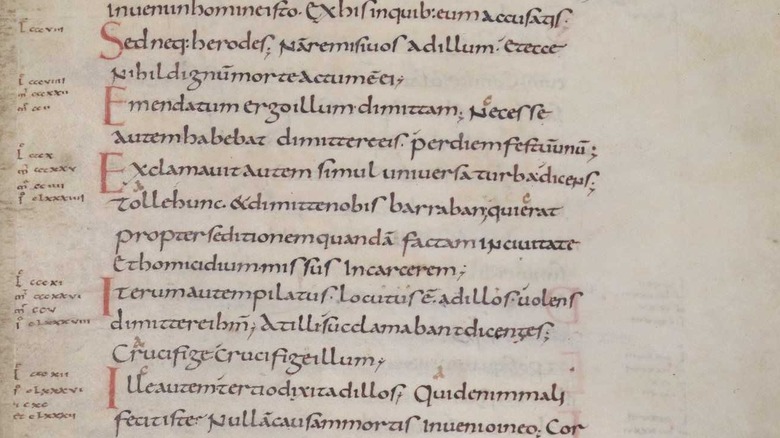 invenio in homine isto. Ex his in quib: eum accusatis.
Sed neq: herodes; Nā remisi vos ad illum. Et ecce
Nihil dignū morte actum ē ei;
Emendatum ergo illum dimittam; Necesse
autem habebat dimittere eis. per diem festū unū;
Exclamavit autem simul universa turba dicens;
Tolle hunc. & dimitte nobis barraban; qui erat
propter seditionem quandā factam in civitate
Et homicidium missus in carcerem;
Iterum autem pilatus. locutus ē. ad illos. volens
dimittere ihm; At illi succlamabant dicentes;
Crucifige Crucifige illum;
Ille autem tertio dixit ad illos; Quid enim mali
fecit iste? Nullā causam mortis invenio in eo; Cor